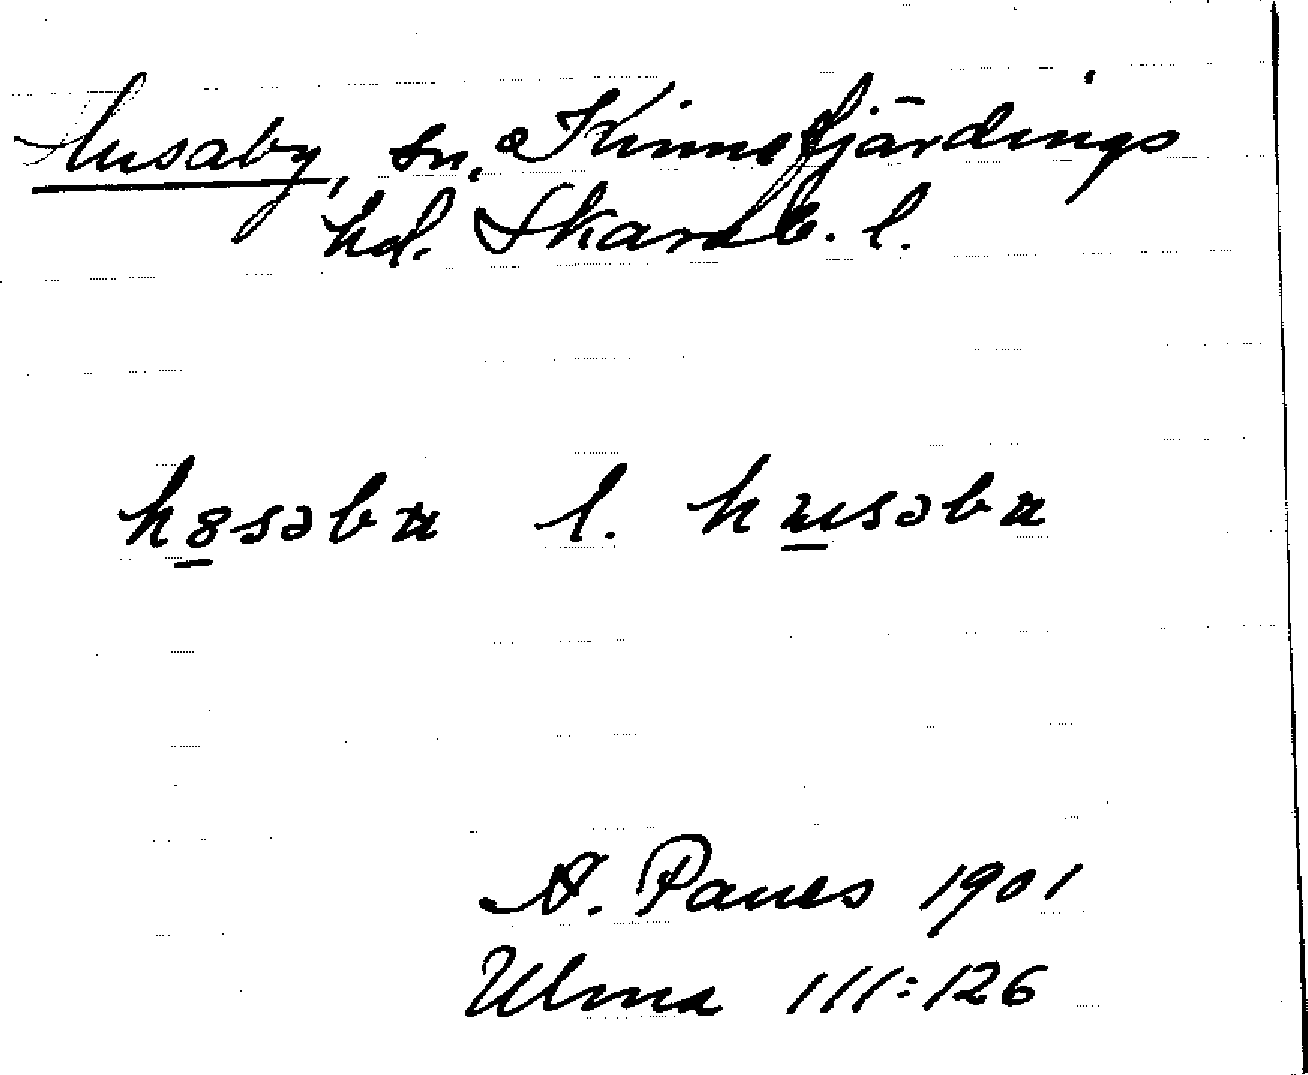 Husaby, sn, Kinnefjärdings
hd. Skarab. l.
hȣsəbʉ l. hʉsəbʉ
A. Panes 1901
Ulma 111:126